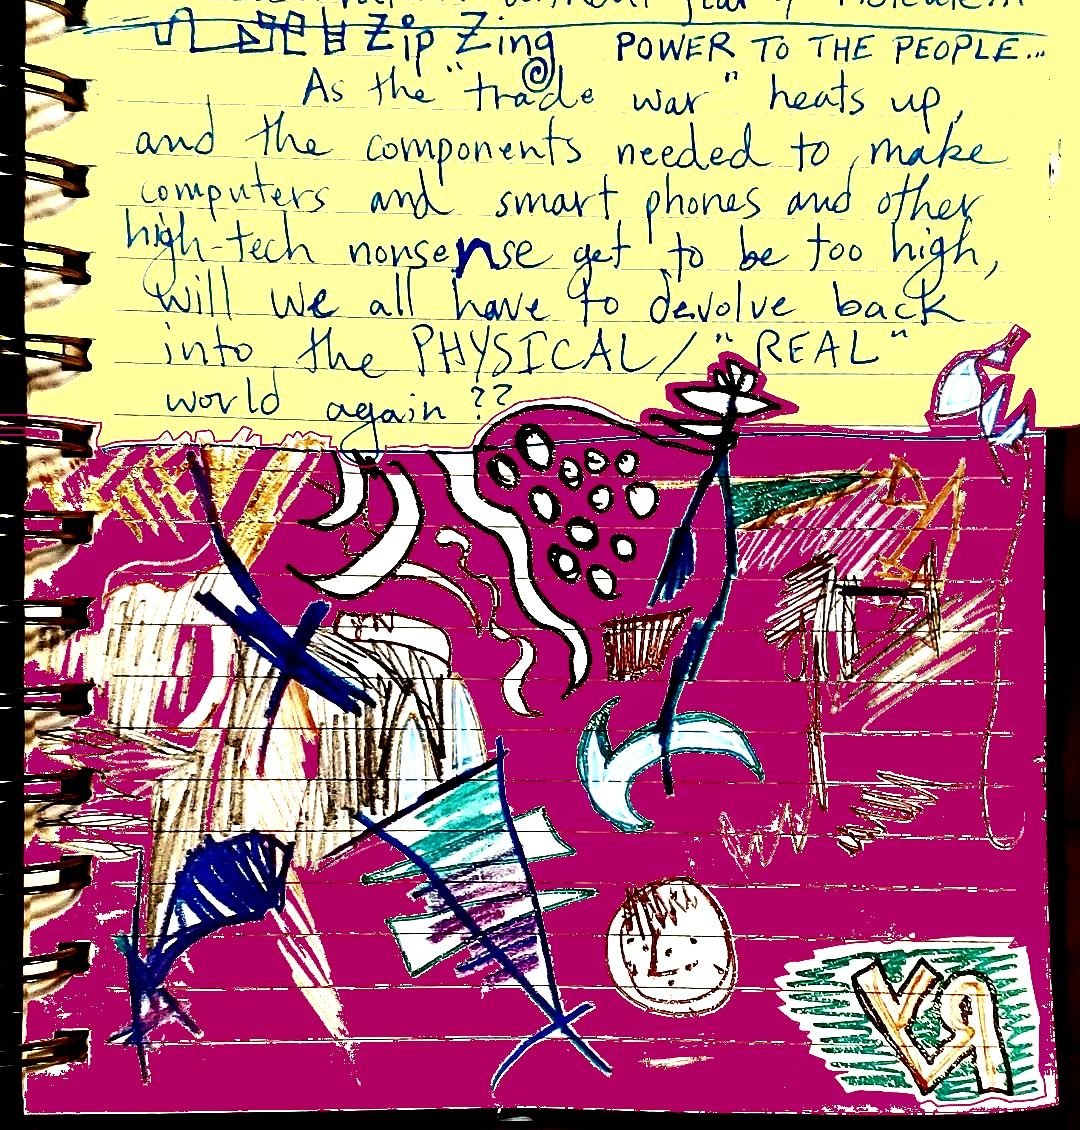 Zip Zing POWER TO THE PEOPLE...
As the "trade war" heats up,
and the components needed to make
computers and smart phones and other
high-tech nonsense get to be too high,
will we all have to devolve back
into the PHYSICAL/"REAL"
world again??